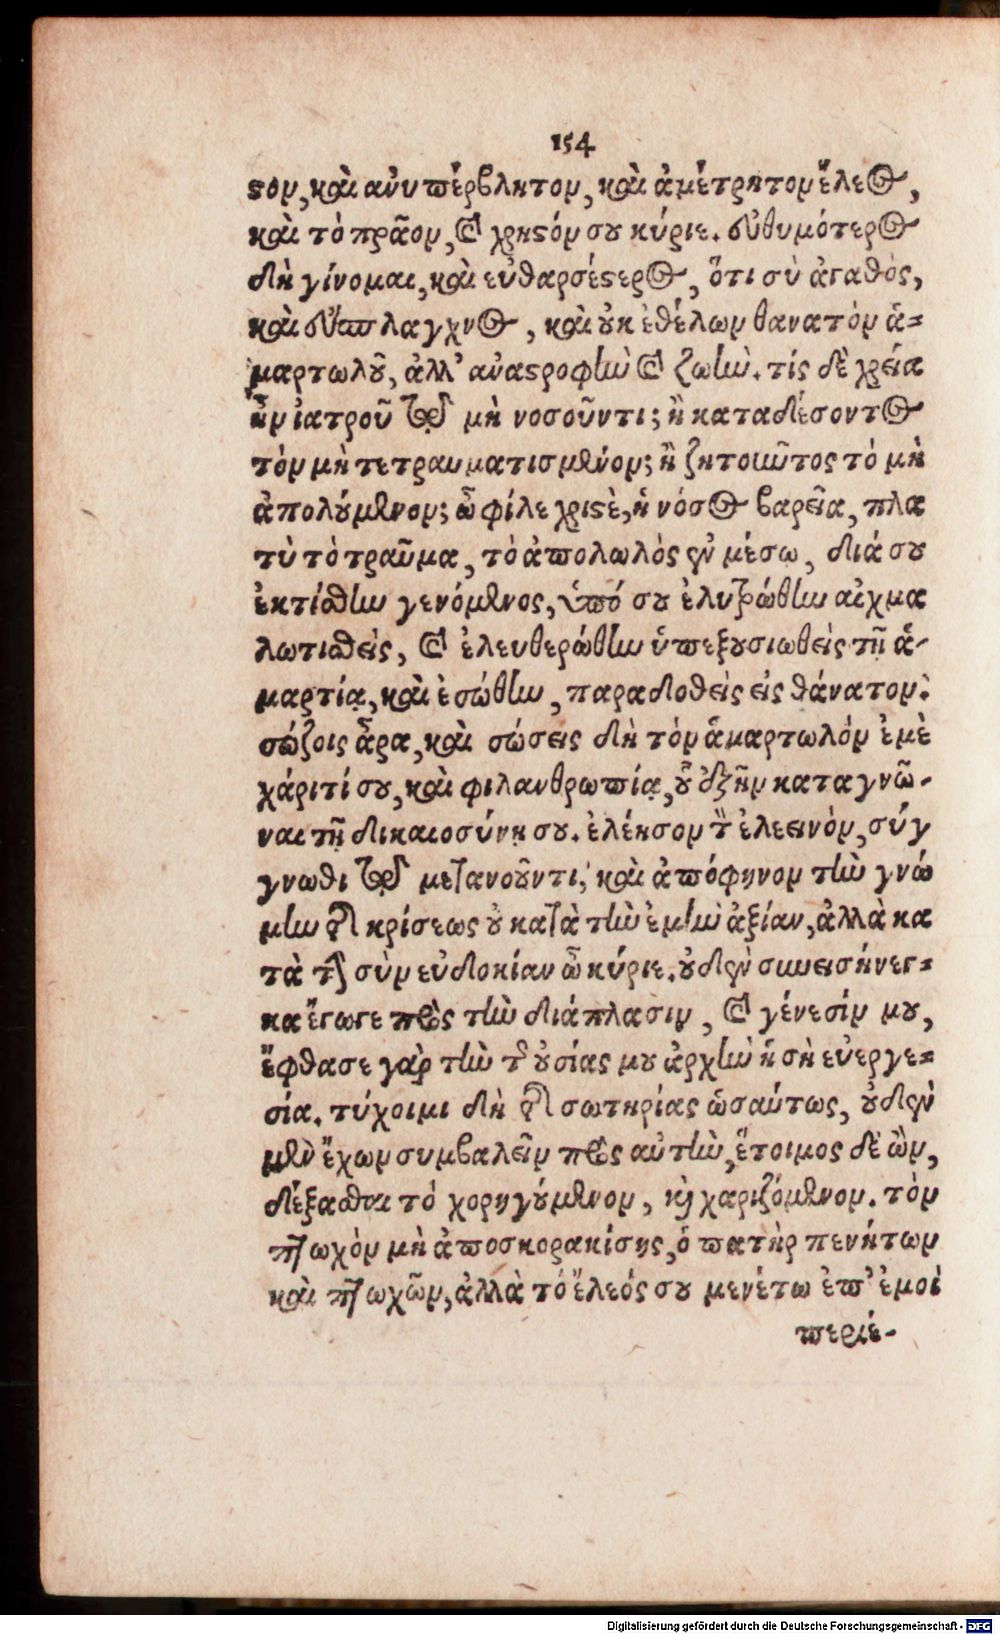 154
ϛον, καὶ ἀνυπέρβλητον, καὶ ἀμέτρητον ἔλεος,
καὶ τὸ πρᾶον, καὶ χρηϛόν σου κύριε. εὐθυμότερος
δὴ γίνομαι, καὶ εὐθαρσέϛερος, ὅτι σὺ ἀγαθὸς,
καὶ εὔσπλαγχνος, καὶ οὐκ ἐθέλων θανατὸν ἁ=
μαρτωλοῦ, ἀλλ' ἀναϛροφὴν καὶ ζωήν. τίς δὲ χρεία
ἦν ἰατροῦ τῷ μὴ νοσοῦντι; ἢ καταδέσοντος
τὸν μὴ τετραυματισμένον; ἢ ζητοιῶτος τὸ μὴ
ἀπολούμενον; ὦ φίλε χριϛὲ, ἡ νόσος βαρεῖα, πλα
τὺ τὸ τραῦμα, τὸ ἀπολωλὸς ἐν μέσῳ, διά σου
ἐκτίσθην γενόμενος, ὑπό σου ἐλυτρώθην αἰχμα
λωτισθεὶς, καὶ ἐλευθερώθην ὑπεξουσιωθεὶς τῇ ἁ-
μαρτίᾳ, καὶ ἐσώθην, παραδοθεὶς εἰς θάνατον:
σώζοις ἆρα, καὶ σώσεις δὴ τὸν ἁμαρτωλόν ἐμὲ
χάριτί σου, καὶ φιλανθρωπίᾳ, ὃ ἐξῆν καταγνῶ-
ναι τῇ δικαιοσύνῃ σου. ἐλέησον τὸν ἐλεεινὸν, σύγ
γνωθι τῷ μετανοοῦντι, καὶ ἀπόφηνον τὴν γνώ
μην τῆς κρίσεως οὐ κατὰ τὴν ἐμὴν ἀξίαν, ἀλλὰ κα
τὰ τὴν σὴν εὐδοκίαν ὦ κύριε. οὐδὲν συνεισήνεγ=
κα ἔγωγε πρὸς τὴν διάπλασιν, καὶ γένεσίν μου,
ἔφθασε γὰρ τὴν τῆς οὐσίας μου ἀρχὴν ἡ σὴ εὐεργε=
σία. τύχοιμι δὴ τῆς σωτηρίας ὡσαύτως, οὐδὲν
μὲν ἔχων συμβαλεῖν πρὸς αὐτὴν, ἕτοιμος δὲ ὢν,
δέξασθαι τὸ χορηγούμενον, καὶ χαριζόμενον. τὸν
πτωχὸν μὴ ἀποσκορακίσῃς, ὁ πατὴρ πενήτων
καὶ πτωχῶν, ἀλλὰ τὸ ἔλεός σου μενέτω ἐπ' ἐμοὶ
περιέ-
Digitalisierung gefördert durch die Deutsche Forschungsgemeinschaft - DFG